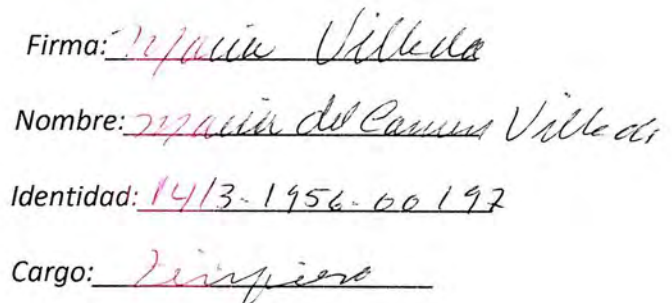 Firma: Maria Villeda
Nombre: Maria del Carmen Villeda
Identidad: 1413-1956-00197
Cargo: